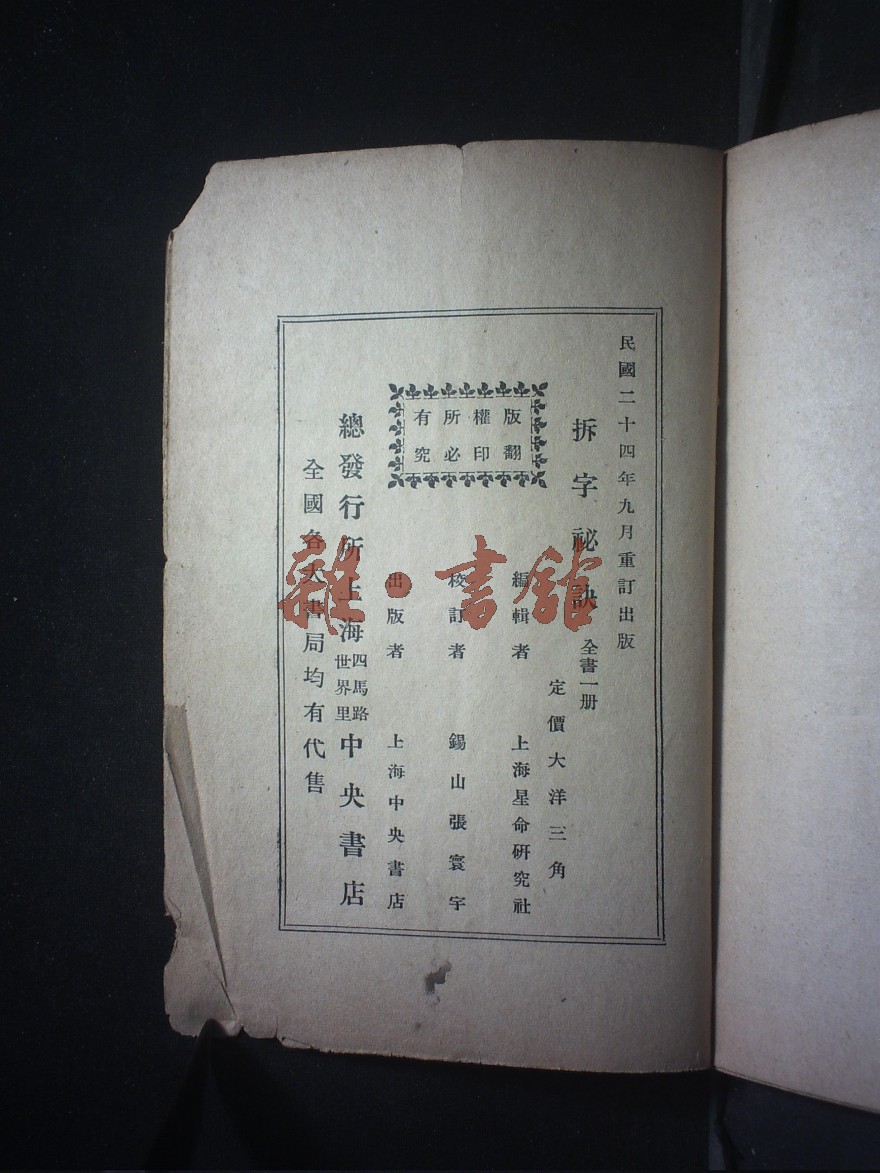 民國二十四年九月重訂出版
拆字祕訣 全書一册
定價大洋三角
編輯者 上海星命研究社
校訂者 錫山張寰宇
出版者 上海中央書店
版權所有
翻印必究
總發行所上海四馬路世界里中央書店
全國各大書局均有代售
雜·書館